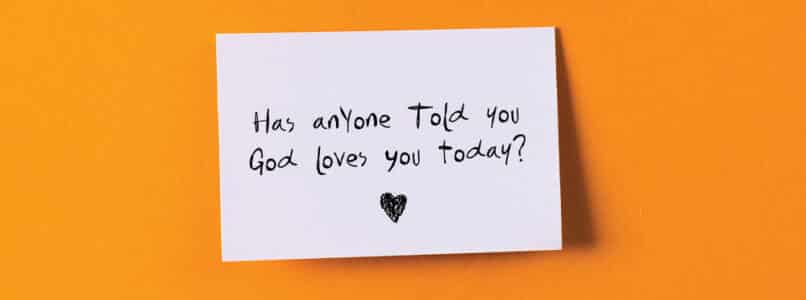 Has anyone Told you
God loves you today?